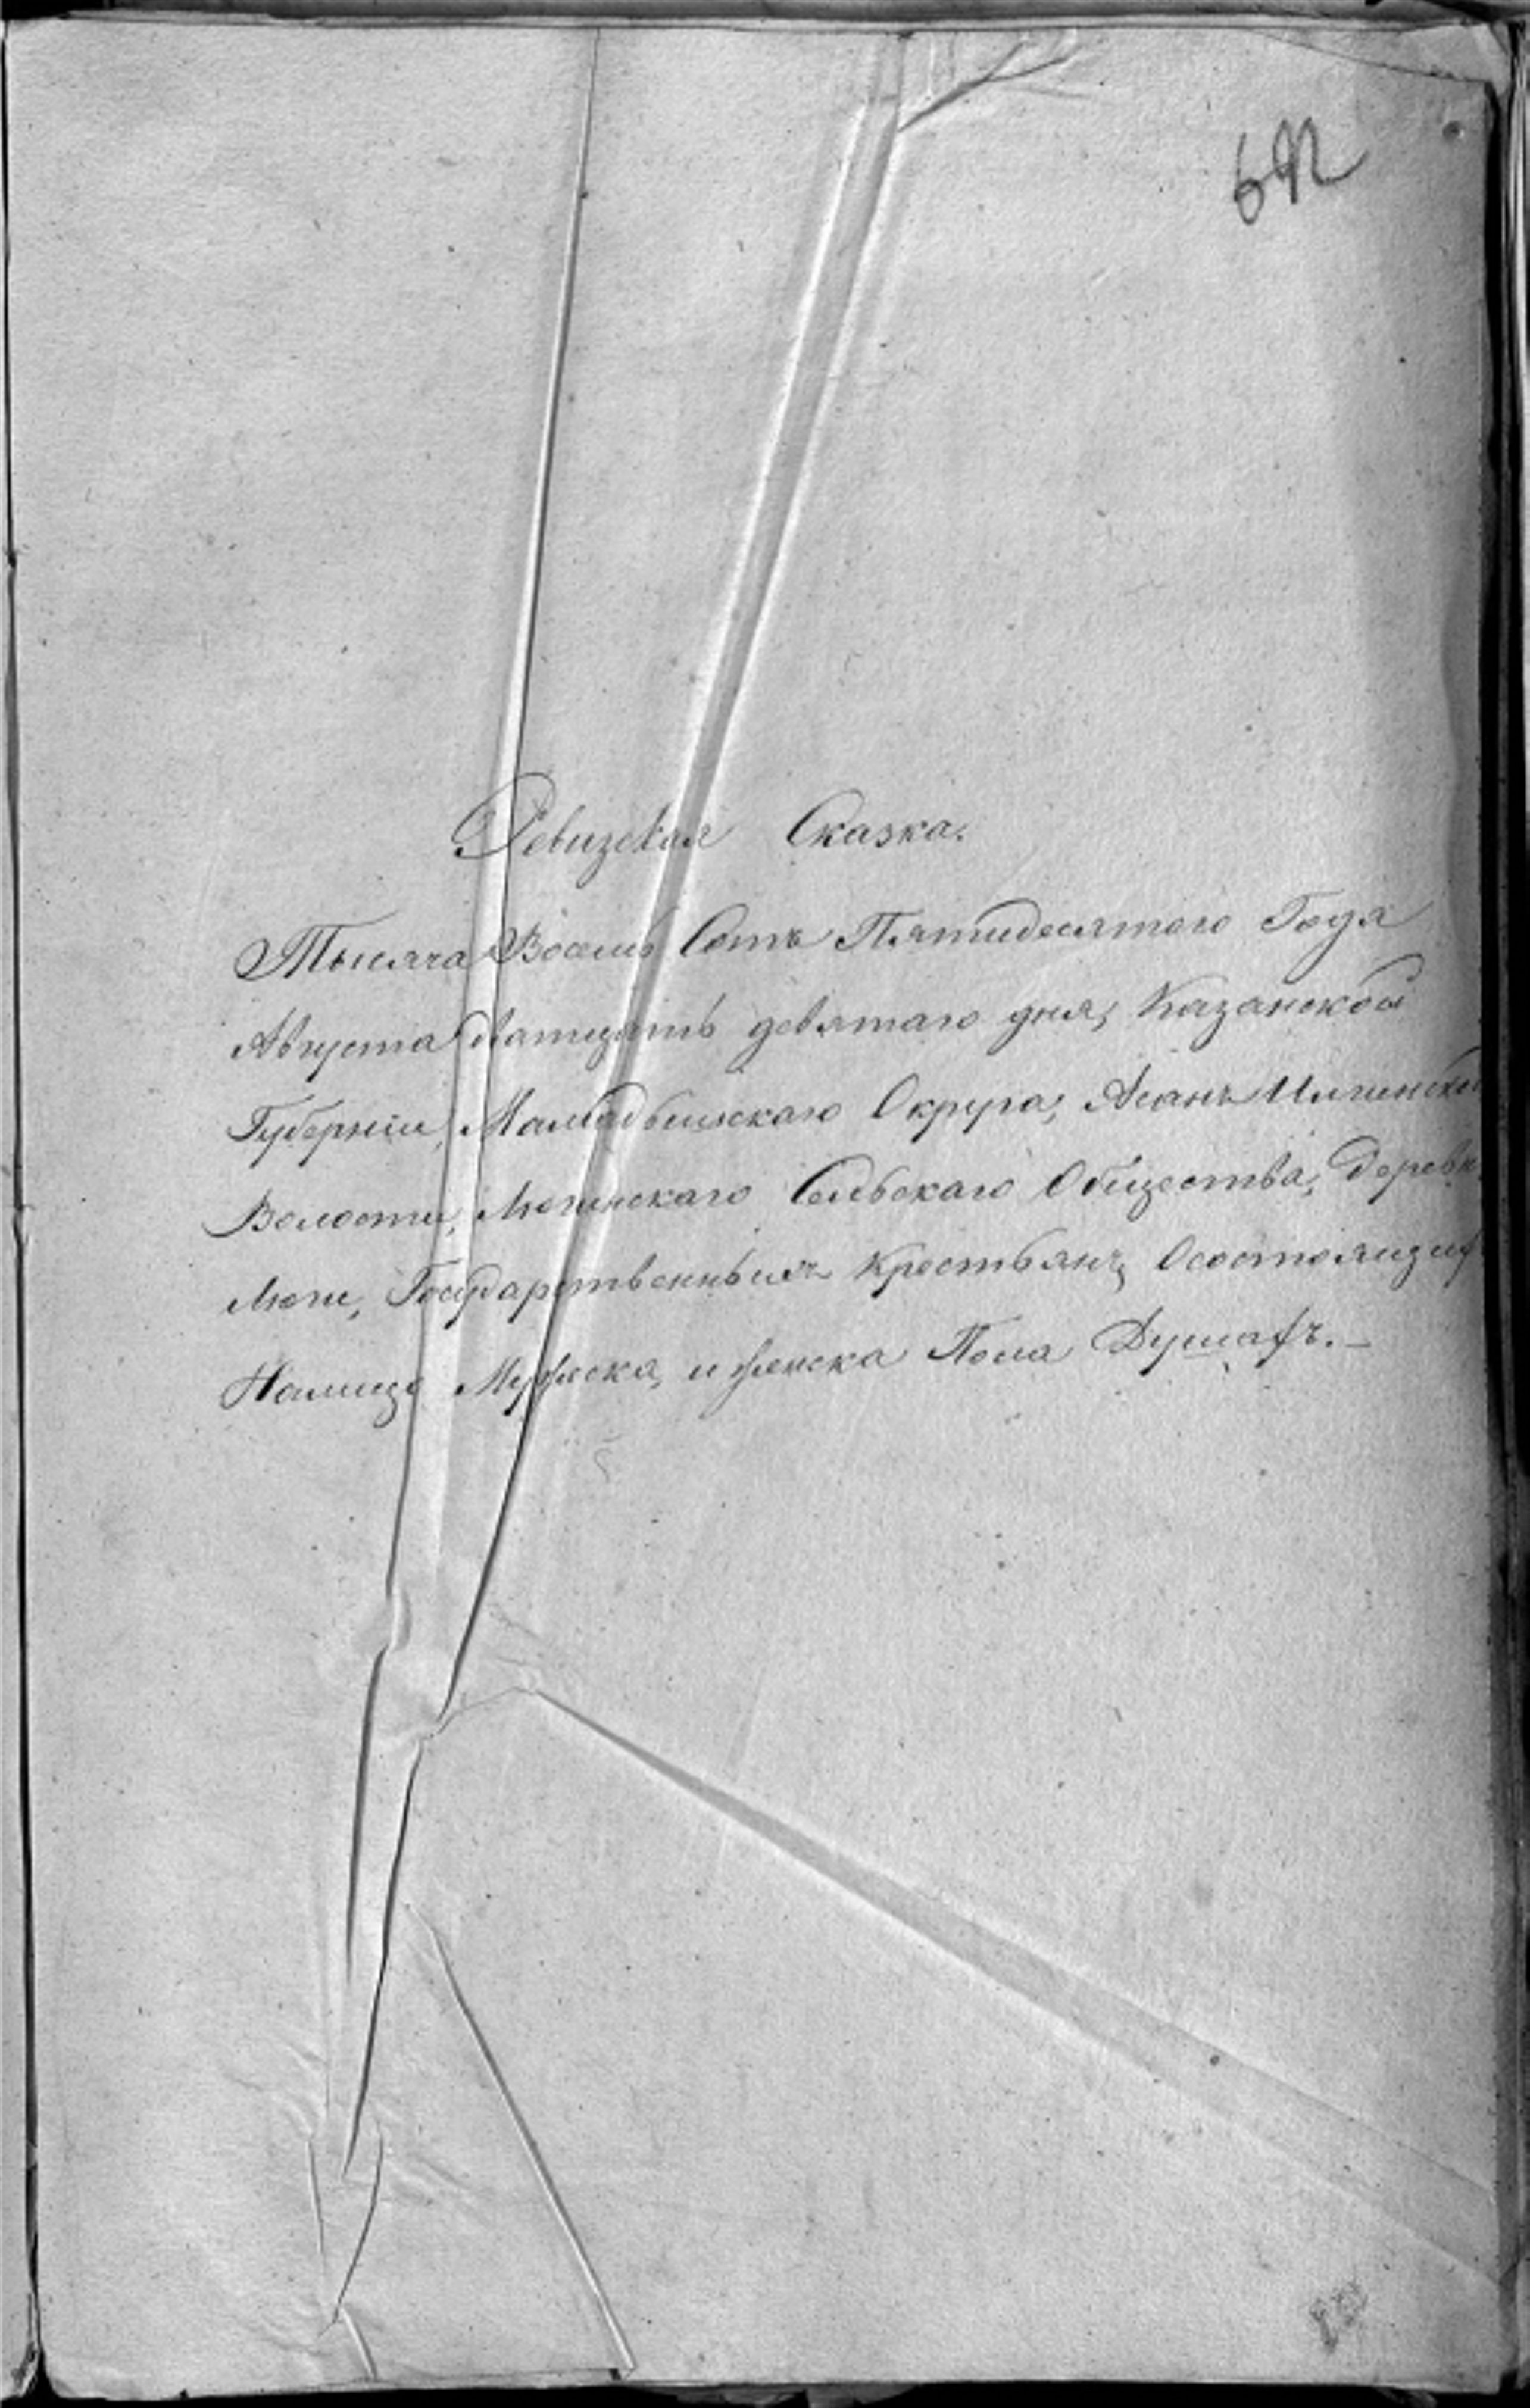 692
Ревизская Сказка.
Тысяча Восемь Сотъ Пятидесятого Года
Августа дватцать девятаго дня, Казанской
Губерніи, Мамадышскаго Округа, Асанъ Илгинской
Волости, Люгинскаго Сельскаго Общества, Деревни
Люги, Государственныхъ Крестьянъ, Осостоящихъ
Налицо Мужеска, и женска Пола Душахъ.—